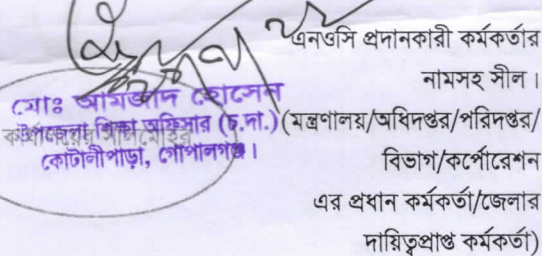 এনওসি প্রদানকারী কর্মকর্তার
নামসহ সীল।
(মন্ত্রণালয়/অধিদপ্তর/পরিদপ্তর/
বিভাগ/কর্পোরেশন
এর প্রধান কর্মকর্তা/জেলার
দায়িত্বপ্রাপ্ত কর্মকর্তা)
মোঃ আমজাদ হোসেন
উপজেলা শিক্ষা অফিসার (চ.দা.)
কোটালীপাড়া, গোপালগঞ্জ।